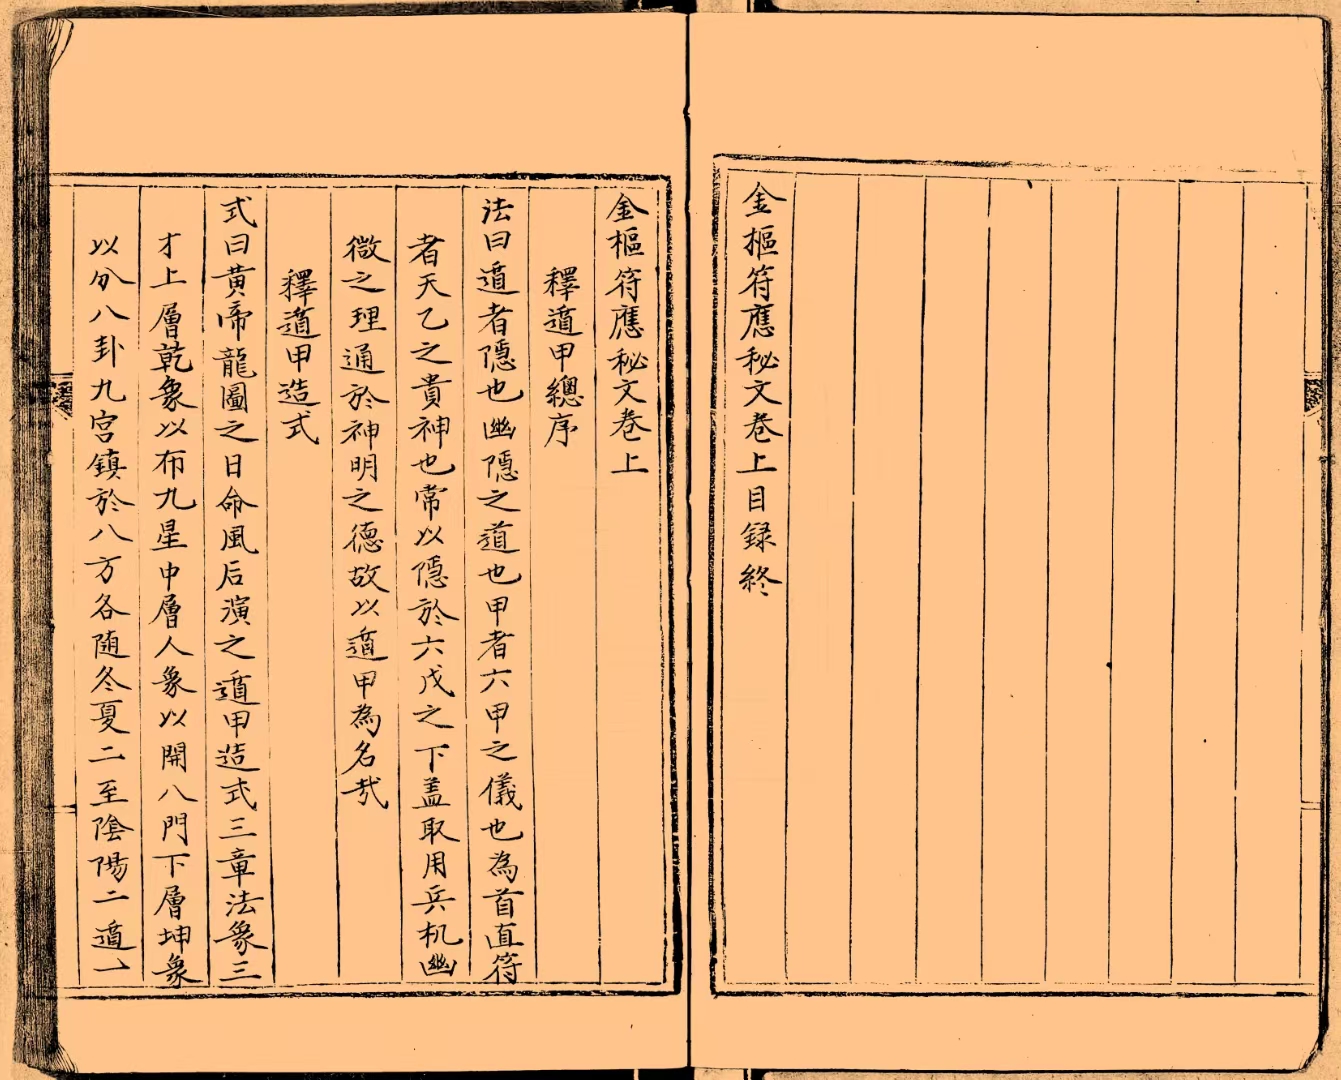 金樞符應秘文卷上目録終
金樞符應秘文卷上
釋遁甲總序
法曰遁者隱也幽隱之道也甲者六甲之儀也為首直符
者天乙之貴神也常以隱於六戊之下盖取用兵机幽
微之理通於神明之德故以遁甲為名哉
釋遁甲造式
式曰黃帝龍圖之日命風后演之遁甲造式三章法象三
才上層乾象以布九星中層人象以開八門下層坤象
以分八卦九宮鎮於八方各随冬夏二至陰陽二遁一